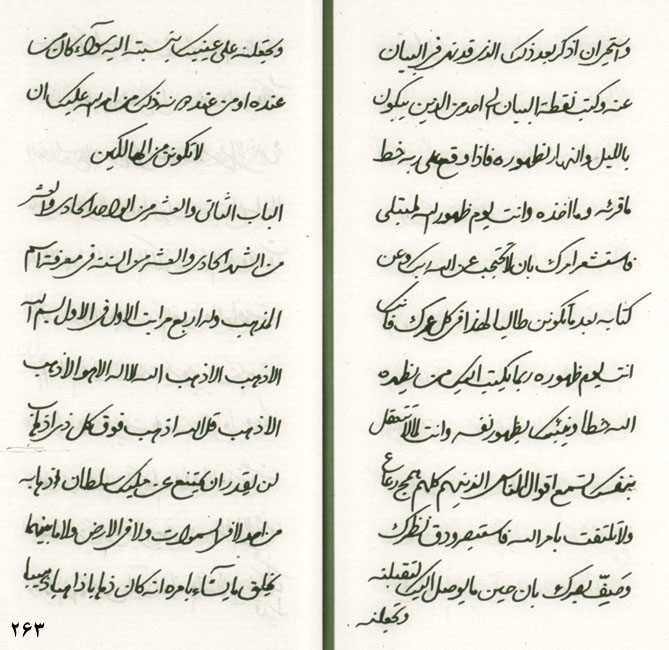 واستحزان اذكر بعد ذلك الذي قد نزل في البيان
عنه وكتب نقطة البيان الى احد من الذين يبكون
بالليل والنهار لظهوره فاذا وقع على يديه خط
ما قرئه وما اخذه وانت يوم ظهور الله لمبتلى
فاستشعر امرك بان لا تحتجب عن الله ربك وعن
كتابه بعد ما تكونن طالبا لهذا في كل عمرك فانك
انت يوم ظهوره ربما يكتب اليك من يظهره
الله خطا وينبئك بظهور نفسه وانت لما لا تستقل
بنفسك تسمع اقوال الناس الذينهم كلهم همج رعاع
ولا تلتفت بامر الله فاستبصر ودق نظرك
وصف بصرك بان حين ما يوصل اليك لتقبلنه
وتجعلنه
وتجعلنه على عينيك بنسبته اليه سواء كان من
عنده او من عند ذكر من امر الله عليك ان
لا تكونن من الهالكين
الباب الثاني والعشر من الواحد الحادي والعشر
من الشهر الحادي والعشر من السنة في معرفة اسم
المذهب وله اربع مراتب الاول في الاول بسم الله
الاذهب الاذهب الله لا اله الا هو الاذهب
الاذهب قل الله اذهب فوق كل ذي اذهاب
لن يقدر ان يمتنع عن مليك سلطان اذهابه
من احد لا في السموات ولا في الارض ولا ما بينهما
يخلق ما يشاء بامره انه كان ذهابا ذاهبا ذهيبا
٢۶٣